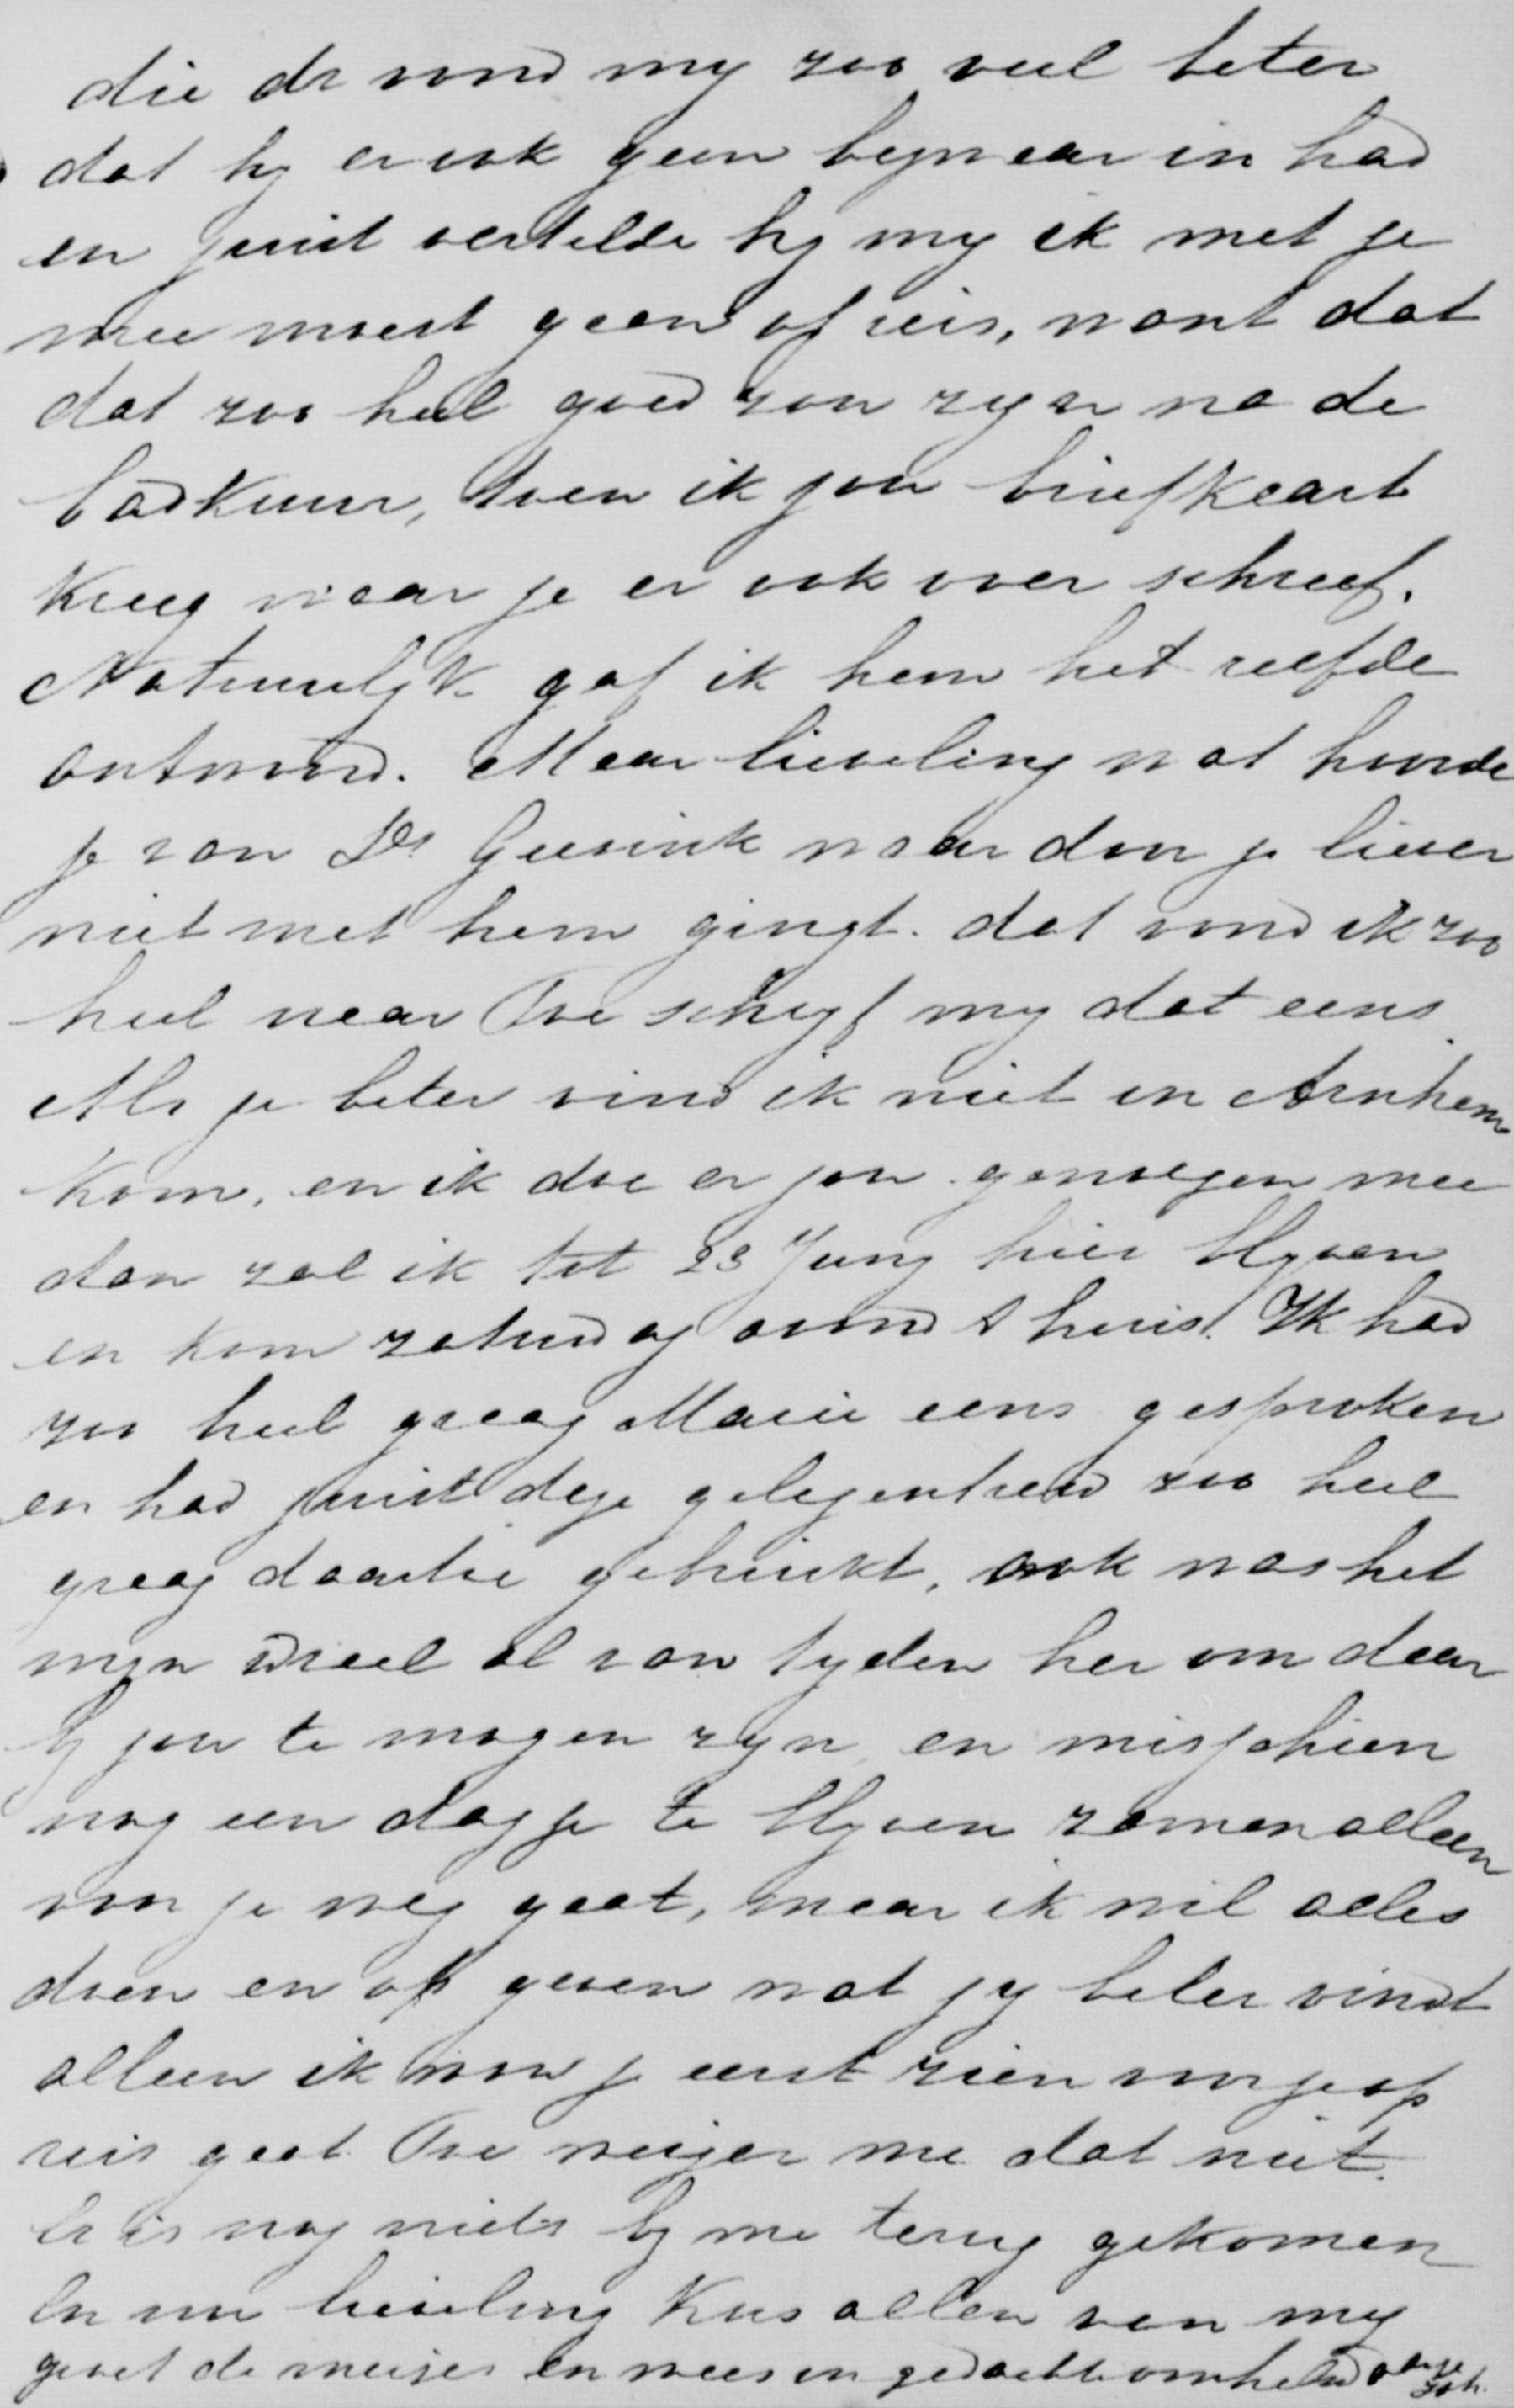 die dr vond my zoo veel beter
dat hy er ook geen bezwaar in had
en juist vertelde hy my ik met je
mee moest gaan op reis, want dat
dat zoo heel goed zou zyn na de
badkuur, toen ik jou briefkaart
kreeg waar je er ook over schreef.
Natuurlyk gaf ik hem het zelfde
antwoord. Maar lieveling wat hoorde
je van Ds Geesink waardoor je liever
niet met hem gingt. dat vond ik zoo
heel naar Toe schryf my dat eens.
Als je beter vind ik niet in Arnhem
kom, en ik doe er jou genoegen mee
dan zal ik tot 23 Juny hier blyven
en kom zaturdag avond thuis. Ik had
zoo heel graag Marie eens gesproken
en had juist deze gelegenheid zoo heel
graag daartoe gebruikt, ook was het
myn ideaal al van tyden her om daar
by jou te mogen zyn en misschien
nog een dagje te blyven samen alleen
voor je weg gaat, maar ik wil alles
doen en op geven wat jy beter vindt
alleen ik wou je eerst zien voor je op
reis gaat. Toe weiger me dat niet.
Er is nog niets by me terug gekomen
En nu lieveling kus allen van my
groet de meisjes en wees in gedachte omhelsd door je